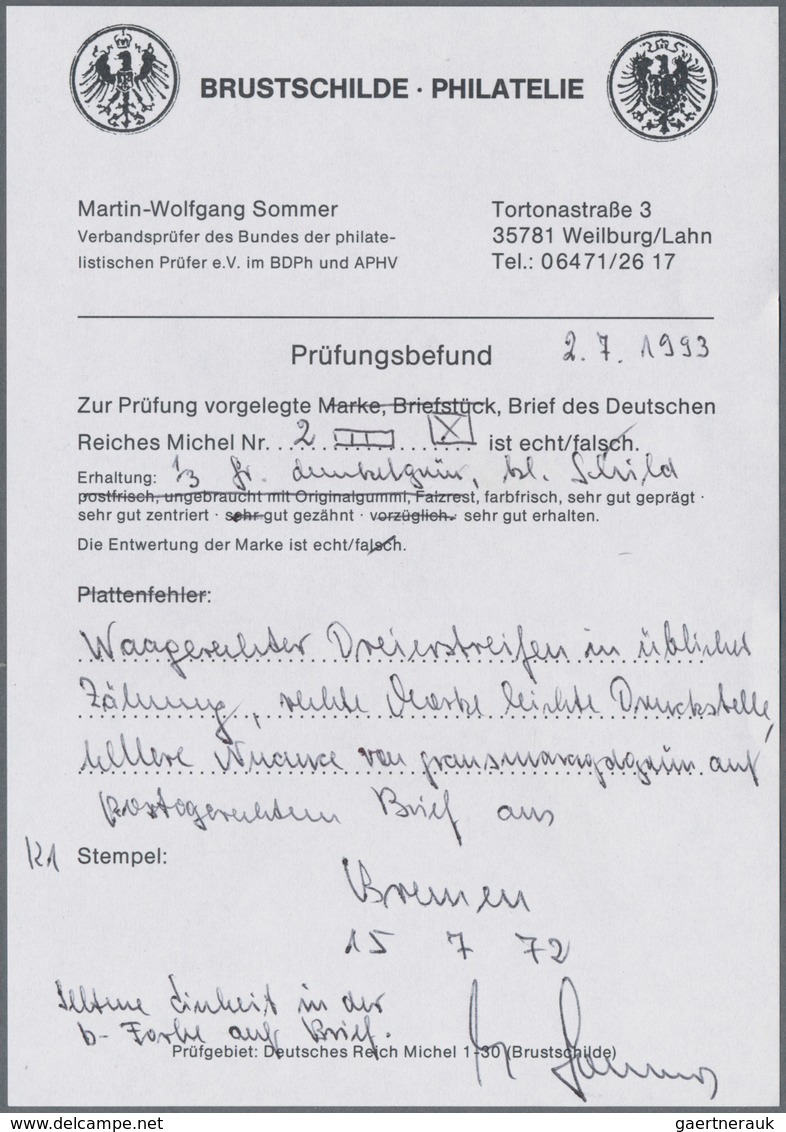 BRUSTSCHILDE · PHILATELIE
Martin-Wolfgang Sommer
Verbandsprüfer des Bundes der philate-
listischen Prüfer e.V. im BDPh und APHV
Tortonastraße 3
35781 Weilburg/Lahn
Tel.: 06471/26 17
Prüfungsbefund 2. 7. 1993
Zur Prüfung vorgelegte Marke, Briefstück, Brief des Deutschen
Reiches Michel Nr. 2 ist echt/falsch.
Erhaltung: 1/3 Gr. dunkelgrün, kl. Schild
postfrisch, ungebraucht mit Originalgummi, Falzrest, farbfrisch, sehr gut geprägt ·
sehr gut zentriert · sehr gut gezähnt · vorzüglich · sehr gut erhalten.
Die Entwertung der Marke ist echt/falsch.
Plattenfehler:
Waagerechter Dreierstreifen in üblicher
Zähnung, rechte Marke leichte Druckstelle,
hellere Nuance von grausmaragdgrün auf
portogerechtem Brief aus
K1 Stempel:
Bremen
15 7 72
Seltene Einheit in der
b-Farbe auf Brief.
Prüfgebiet: Deutsches Reich Michel 1-30 (Brustschilde)
Sommer
gaertnerauk